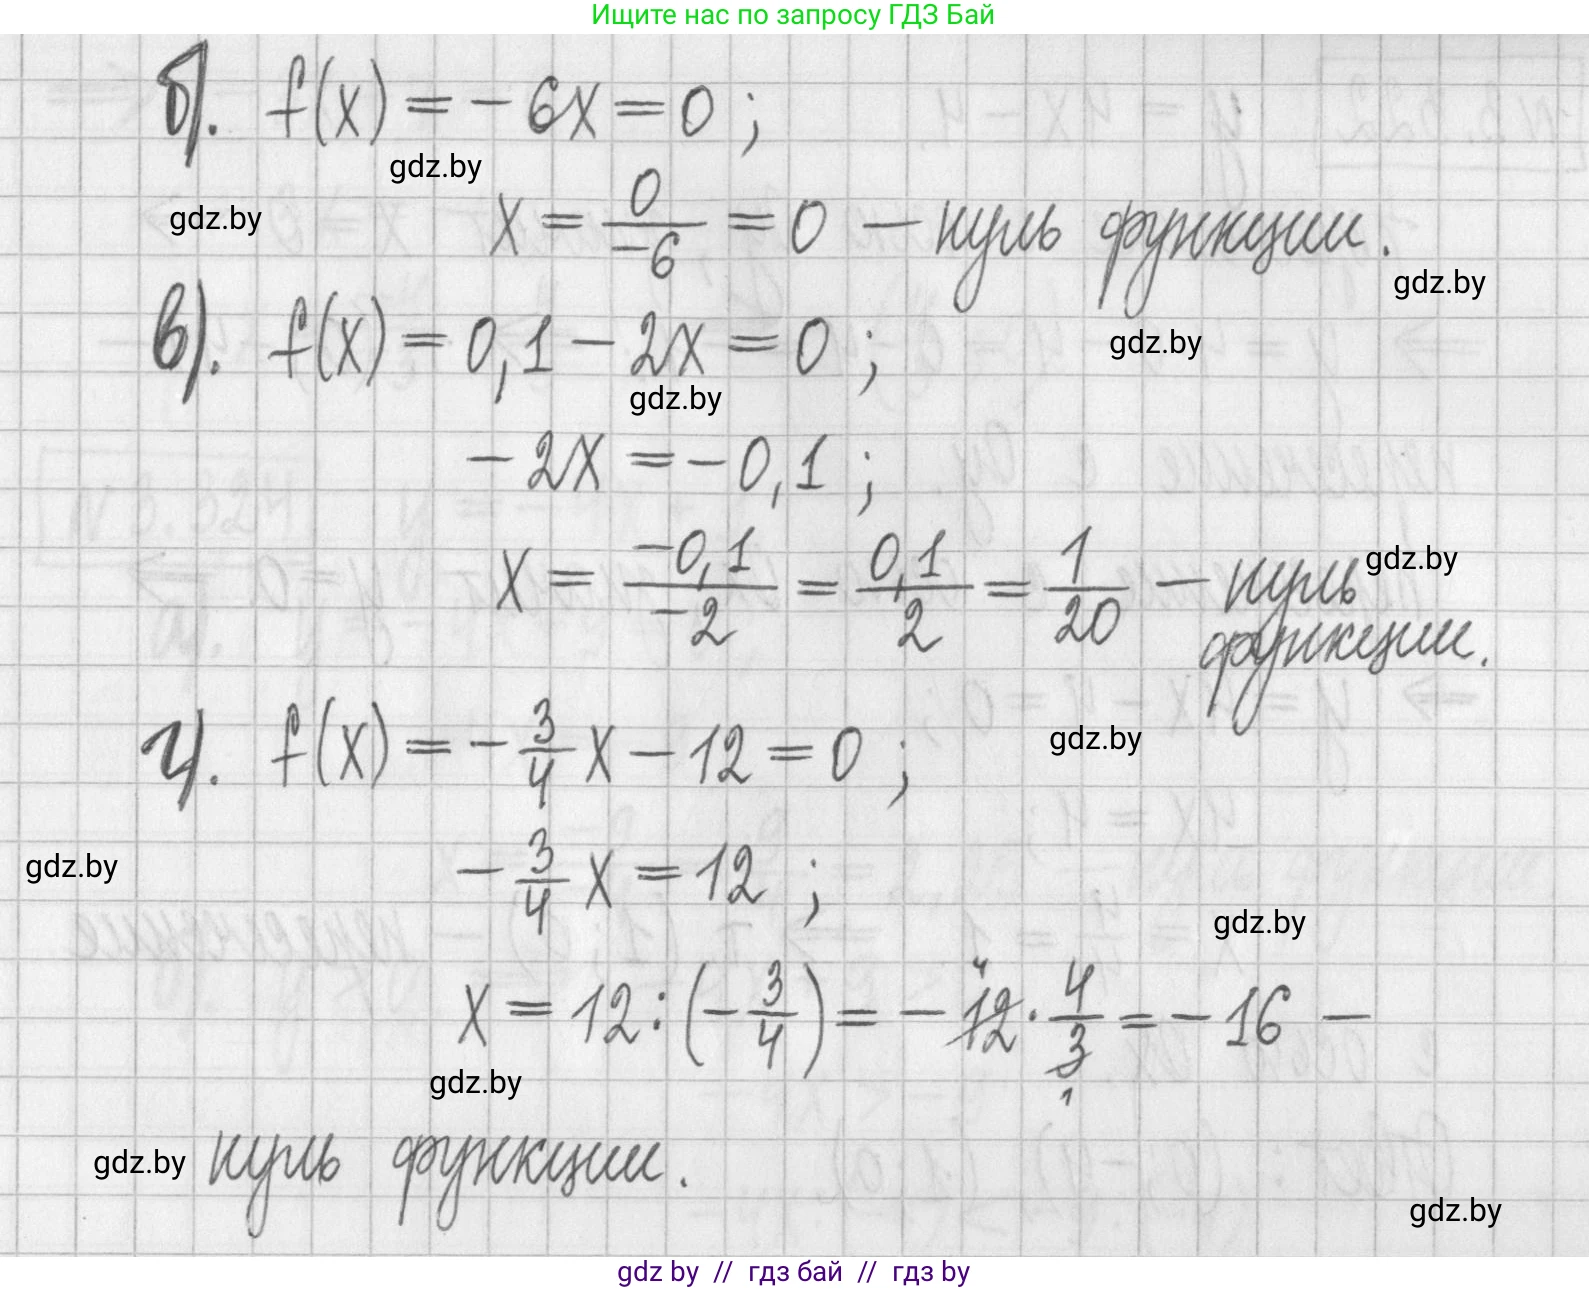 Ищите нас по запросу ГДЗ Бай
б). f(x) = - 6x = 0 ;
gdz.by
gdz.by
x = 0/-6 = 0 — нуль функции.
gdz.by
в). f(x) = 0,1 - 2x = 0 ;
gdz.by
gdz.by
- 2x = - 0,1 ;
x = -0,1/-2 = 0,1/2 = 1/20 — нуль
gdz.by
функции.
г). f(x) = - 3/4 x - 12 = 0 ;
gdz.by
- 3/4 x = 12 ;
gdz.by
gdz.by
x = 12 : (- 3/4) = - 12 4 · 4/3 1 = - 16 —
gdz.by
gdz.by
нуль функции.
gdz.by
gdz by // гдз бай // гдз by